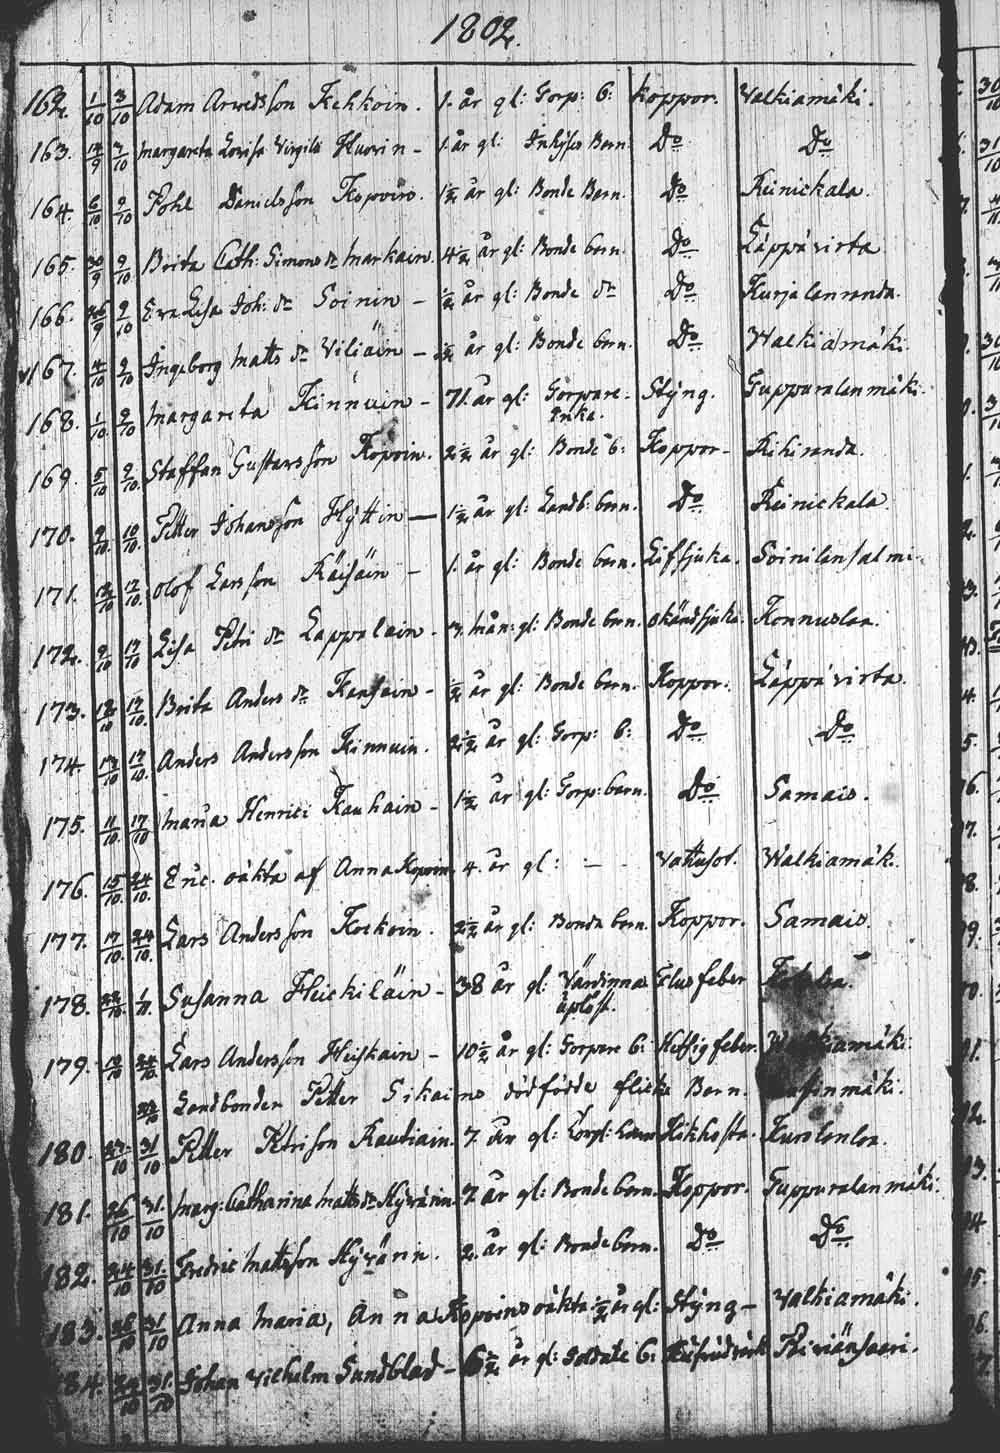 1802.
162. 1/10 3/10 Adam Arwedsson Kehkoin. 1. år gl: Torp: b: koppor. Walkiamäki.
163. 14/9 3/10 Margareta Lovisa Virgilia Huovin - 1. år gl: Inhyses Barn. Do Do
164. 6/10 9/10 Pohl Danielsson Kopoin. 1 1/2 år gl: Bonde Barn. Do Reinickala.
165. 30/9 9/10 Brita Cath: Simons dr Markain. 4 1/2 år gl: Bonde barn. Do Läppävirta
166. 26/9 9/10 Eva Lisa Joh: dr Soinin - 1/2 år gl: Bonde dr Do Kurjalanranda.
167. 4/10 9/10 Ingeborg Matts dr Viliäin - 1/2 år gl: Bonde barn. Do Walkiamäki.
168. 1/10 9/10 Margareta Kinnuin - 71. år gl: Torpare- Styng. Tuppuralanmäki.
Enka.
169. 5/10 9/10. Staffan Gustavsson Kopoin. 2 1/2 år gl: Bonde b: Koppor- Rihiranda.
170. 9/10. 10/10. Petter Johansson Hyttin — 1 1/2 år gl: Landb: barn. Do Reinickala
171. 12/10 17/10. Olof Larsson Räisäin - 1. år gl: Bonde barn. Lifsjuka. Soinilansalmi.
172. 9/10 17/10 Lisa Petri dr Lappalain - 3. mån: gl: Bonde barn. okändsjuka. Konnuslax.
173. 12/10 17/10. Brita Anders dr Kansain - 1/2 år gl: Bonde barn. Koppor. Läppävirta.
174 13/10 17/10. Anders Andersson Kinnuin. 2 1/2 år gl: Torp: b: Do Do
175. 11/10. 17/10 Maria Henrici Kauhain - 1 1/2 år gl: Torp: barn. Do Samais.
176. 15/10. 24/10. Eric. oäkta af Anna Kopoin. 4. år gl: — Vattusot. Walkiamäk.
177. 17/10. 24/10. Lars Andersson Kockoin. 2 1/2 år gl: Bonde barn. Koppor. Samais.
178. 22/10. 1/11. Susanna Heickiläin - 38 år gl: Värdinna Flus feber
179. 19/10 24/10. Lars Andersson Heiskain - 10 1/2 år gl: Torpare b: Hettsig feber. Walkiamäki.
Landbonden Petter Sikains dödfödde flicke Barn.
180. 27/10 31/10 Petter Petrison Rautiain. 7. år gl: Kikhosta. Kurolanlax.
181. 26/10 31./10 Marg: Catharina Matts dr Hyvärin. 7 år gl: Bonde barn. Koppor. Tuppuralanmäki.
182. 24/10 31./10 Fredric Mattsson Hyvärin. 2. år gl: Bonde barn. Do Do
183. 26/10 31/10 Anna Maria, Anna Kopoins oäkta 1/2 år gl: Styng - Walkiamäki.
184. 31./10 Johan Vilhelm Sundblad - 6 1/2 år gl: Soldate b: